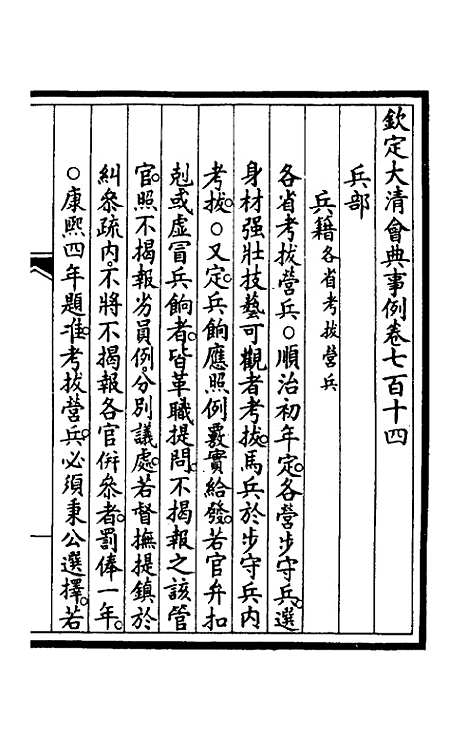 欽定大清會典事例卷七百十四
兵部
兵籍各省考拔營兵
各省考拔營兵○順治初年定。各營步守兵。選
身材强壯技藝可觀者考拔。馬兵於步守兵內
考拔。○又定。兵餉應照例覈實給發。若官弁扣
剋或虛冒兵餉者。皆革職提問。不揭報之該管
官。照不揭報劣員例。分別議處。若督撫提鎮於
糾參疏內。不將不揭報各官倂參者。罰俸一年。
○康熙四年題準。考拔營兵。必須秉公選擇。若